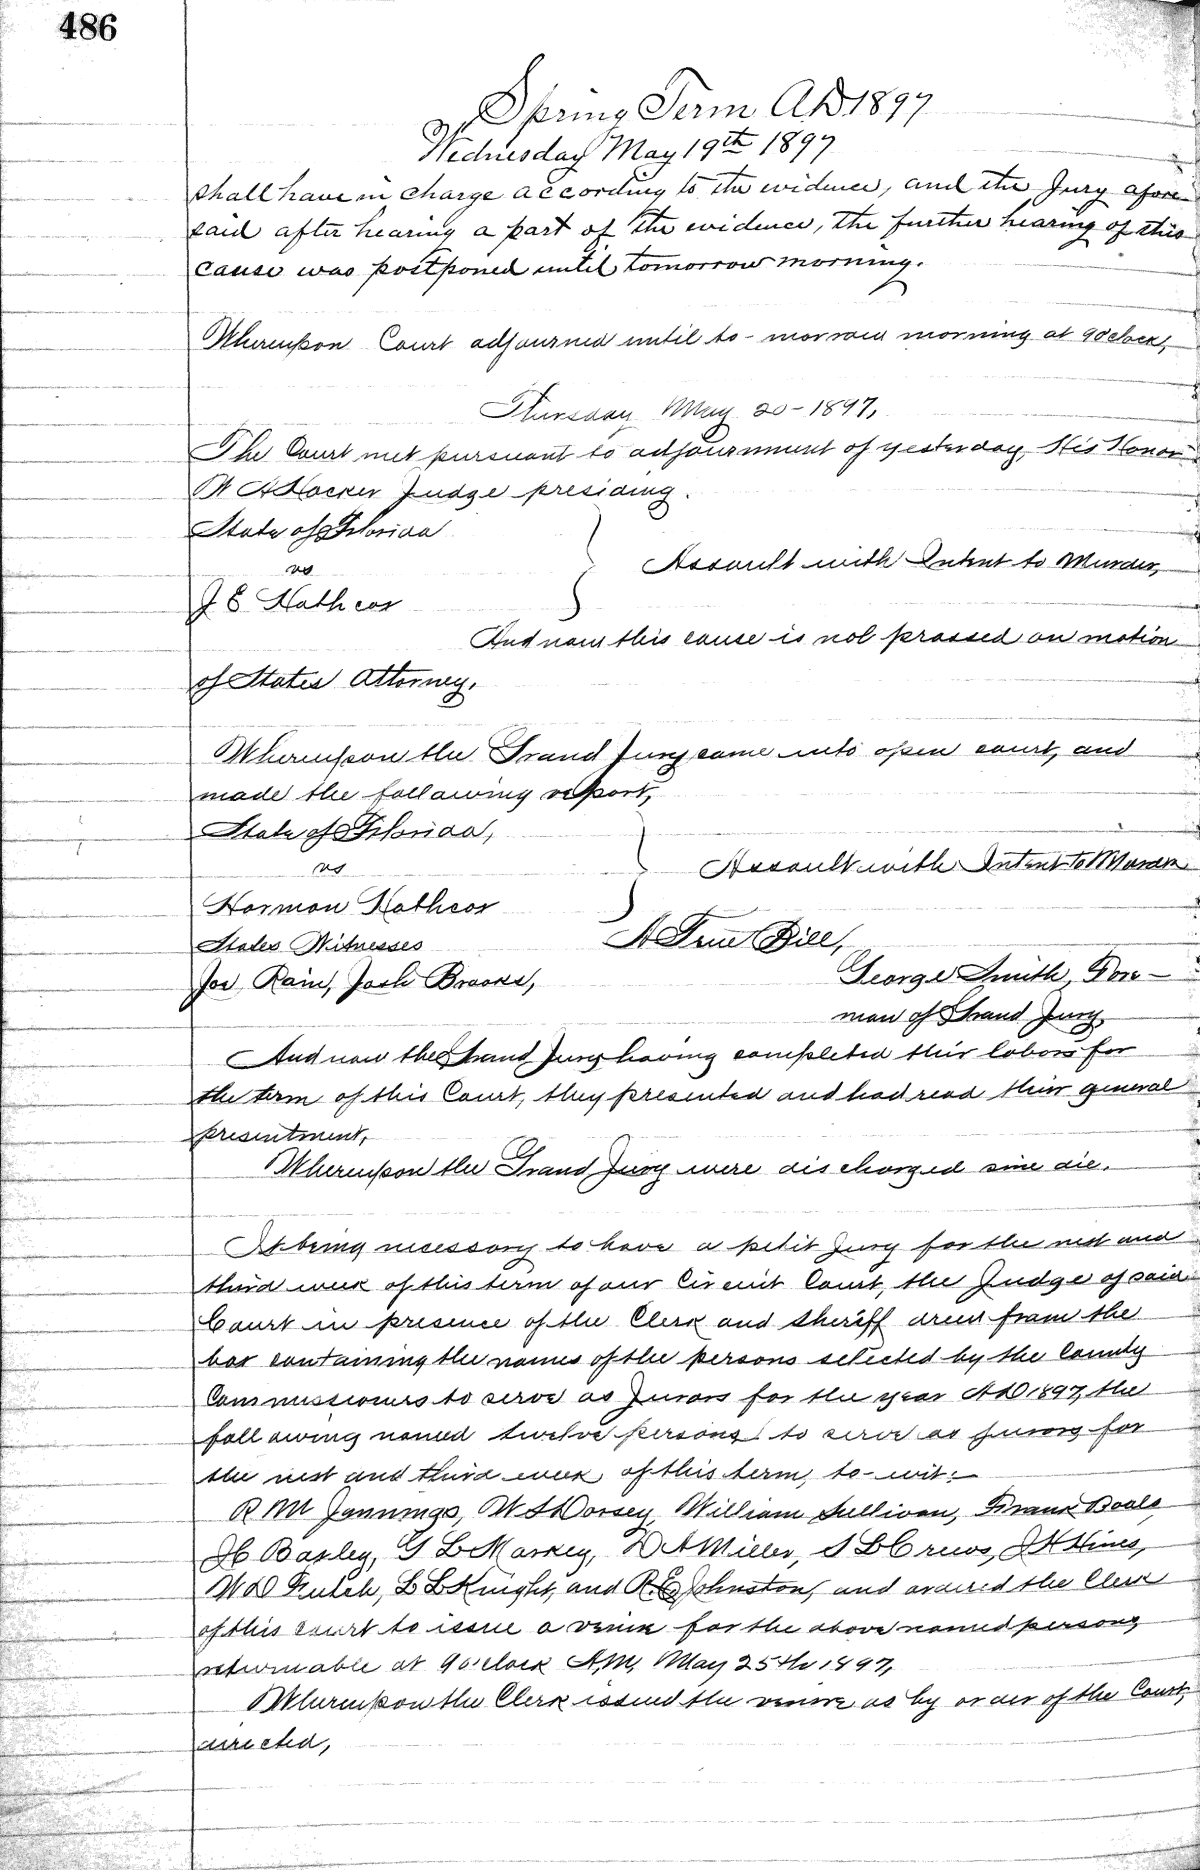 486
Spring Term AD 1897
Wednesday May 19th 1897
shall have in charge according to the evidence, and the Jury afore-
said after hearing a part of the evidence, the further hearing of this
cause was postponed until tomorrow morning.
Whereupon Court adjourned until to-morrow morning at 9 oclock,
Thursday May 20-1897,
The Court met pursuant to adjournment of yesterday, His Honor
W A Hocker Judge presiding.
State of Florida
vs
J E Hathcox
Assault with Intent to Murder,
And now this cause is nol prossed on motion
of States Attorney,
Whereupon the Grand Jury came into open court, and
made the following report,
State of Florida,
vs
Assault with Intent to Murder
Harmon Hathcox
States Witnesses
A True Bill,
Joe Rain, Josh Brooks,
George Smith, Fore-
man of Grand Jury,
And now the Grand Jury having completed their labors for
the term of this Court, they presented and had read their general
presentment,
Whereupon the Grand Jury were discharged sine die.
It being necessary to have a petit Jury for the next and
third week of this term of our Circuit Court, the Judge of said
Court in presence of the Clerk and Sheriff drew from the
box containing the names of the persons selected by the County
Commissioners to serve as Jurors for the year AD 1897, the
following named twelve persons to serve as Jurors for
the next and third week of this term, to-wit:-
R M Jennings, W S Dorsey, William Sullivan, Frank Boals,
J C Baxley, G L Markey, D A Miller, S B Crews, J H Hines,
W D Futch, L L Knight, and R E Johnston, and ordered the Clerk
of this court to issue a venire for the above named persons,
returnable at 9 o'clock A,M, May 25th 1897,
Whereupon the Clerk issued the venire as by order of the Court,
directed,